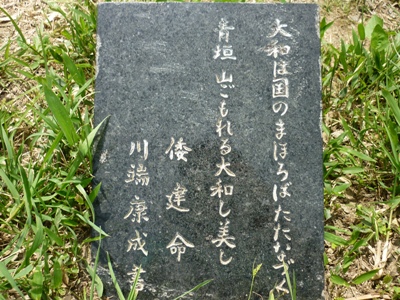 大和は国のまほろばたたなづく
青垣 山ごもれる大和し美し
倭建命
川端康成書